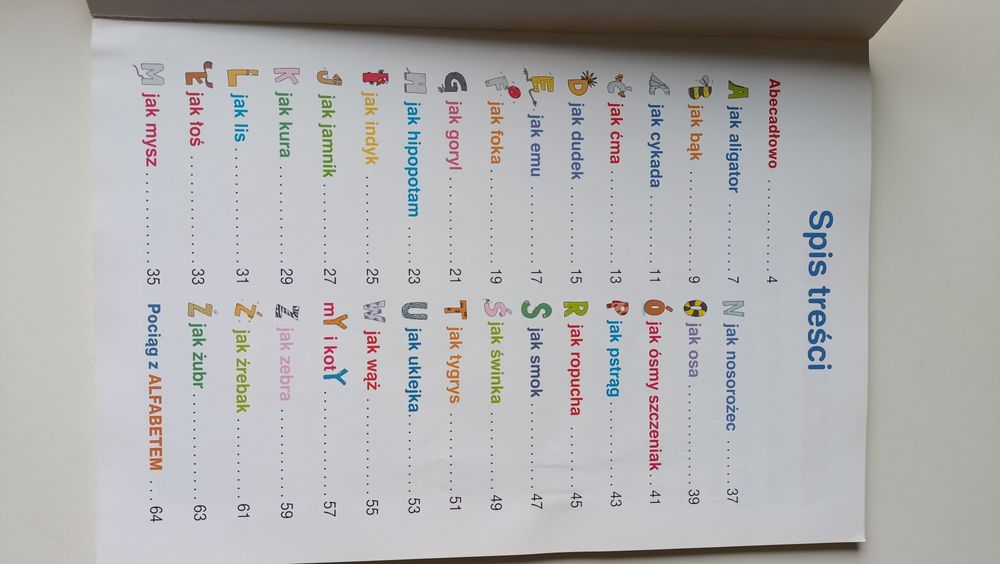 Spis treści
Abecadłowo . . . . . . . . . . . 4
A jak aligator . . . . . . . . 7
B jak bąk . . . . . . . . . . . 9
C jak cykada . . . . . . . 11
Ć jak ćma . . . . . . . . . . 13
D jak dudek . . . . . . . . 15
E jak emu . . . . . . . . . 17
F jak foka . . . . . . . . . . 19
G jak goryl . . . . . . . . . 21
H jak hipopotam . . . . 23
I jak indyk . . . . . . . . . 25
J jak jamnik . . . . . . . . 27
K jak kura . . . . . . . . . . 29
L jak lis . . . . . . . . . . . 31
Ł jak łoś . . . . . . . . . . . 33
M jak mysz . . . . . . . . . 35
N jak nosorożec . . . . . 37
O jak osa . . . . . . . . . . 39
Ó jak ósmy szczeniak . . 41
P jak pstrąg . . . . . . . . 43
R jak ropucha . . . . . . 45
S jak smok . . . . . . . . 47
Ś jak świnka . . . . . . . . 49
T jak tygrys . . . . . . . . 51
U jak uklejka. . . . . . . . 53
W jak wąż . . . . . . . . . 55
mY i kotY . . . . . . . . . . 57
Z jak zebra . . . . . . . . 59
Ź jak źrebak . . . . . . . . 61
Ż jak żubr . . . . . . . . . . 63
Pociąg z ALFABETEM . . . 64